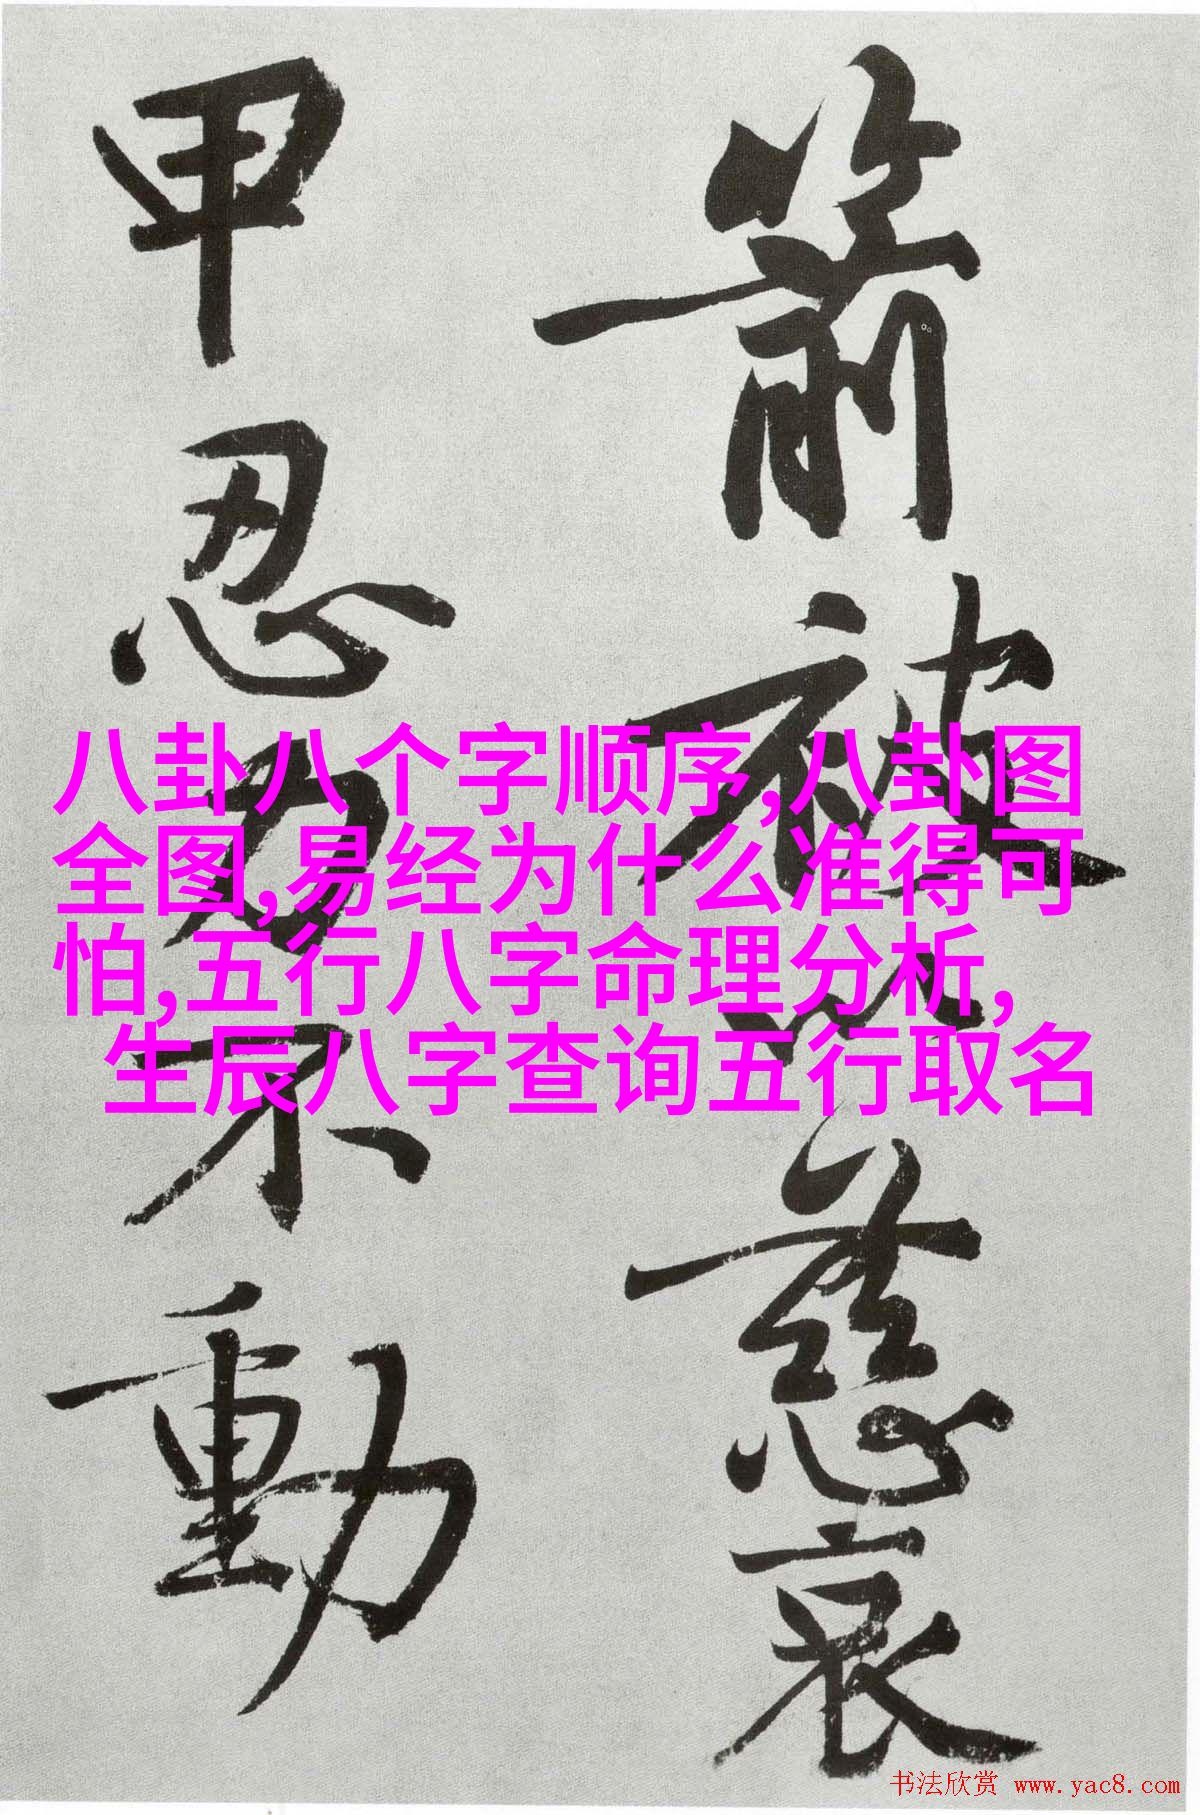 箭被以慈哀
甲忍力不動
八卦八个字顺序,八卦图
全图,易经为什么准得可
怕,五行八字命理分析,
生辰八字查询五行取名
书法欣赏 www.yac8.com